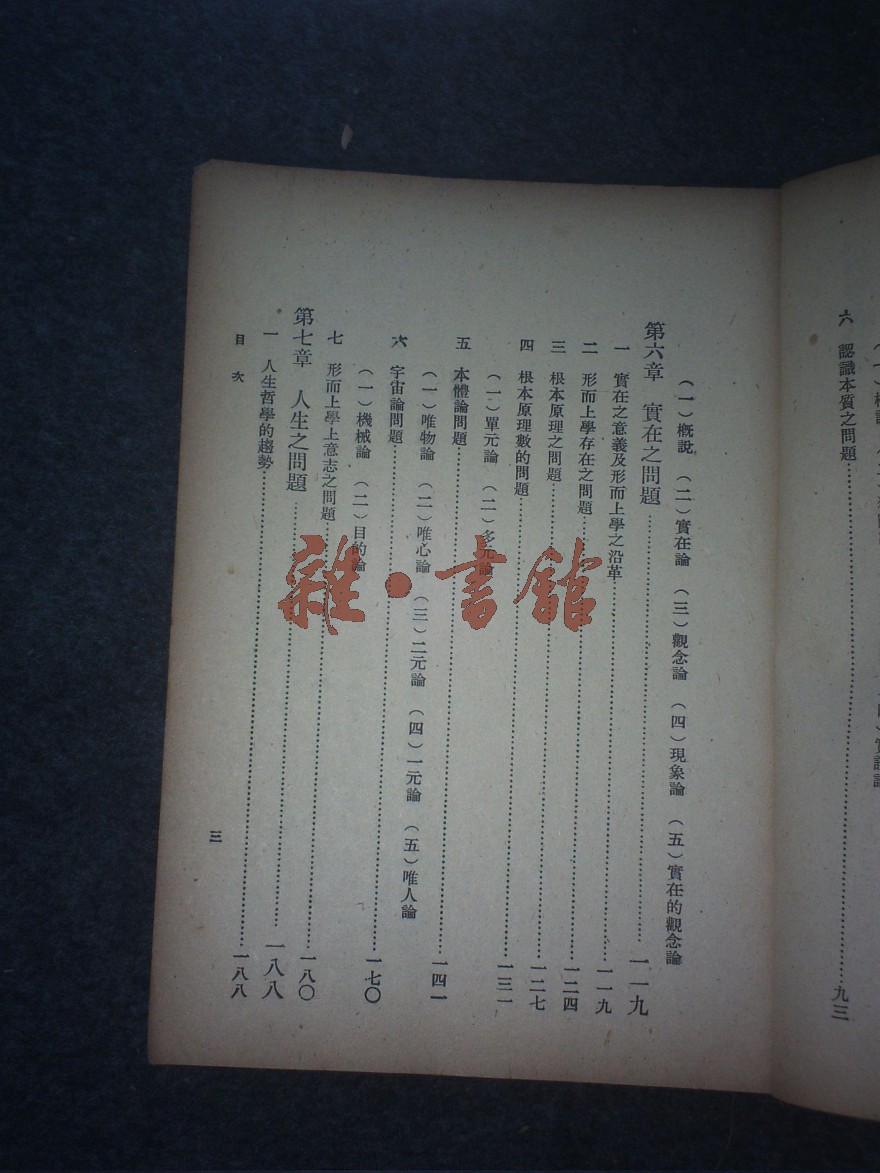 六　認識本質之問題……九三
（一）概說　（二）實在論　（三）觀念論　（四）現象論　（五）實在的觀念論
第六章　實在之問題……一一九
一　實在之意義及形而上學之沿革……一一九
二　形而上學存在之問題……一二四
三　根本原理之問題……一二七
四　根本原理數的問題……一三一
（一）單元論　（二）多元論
五　本體論問題……一四一
（一）唯物論　（二）唯心論　（三）二元論　（四）一元論　（五）唯人論
六　宇宙論問題……一七〇
（一）機械論　（二）目的論
七　形而上學上意志之問題……一八〇
第七章　人生之問題……一八八
一　人生哲學的趨勢……一八八
目次
三
雜·書館